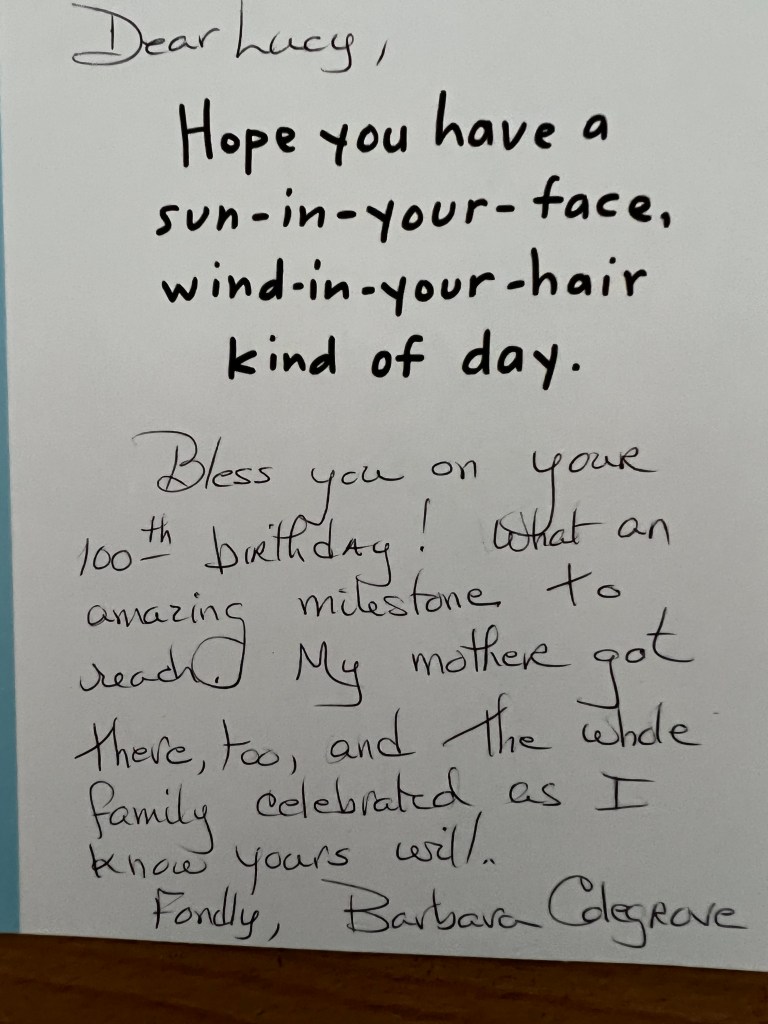 Dear Lucy,
Hope you have a
sun-in-your-face,
wind-in-your-hair
kind of day.
Bless you on your
100th birthday! What an
amazing milestone to
reach. My mother got
there, too, and the whole
family celebrated as I
know yours will.
Fondly, Barbara Colegrove